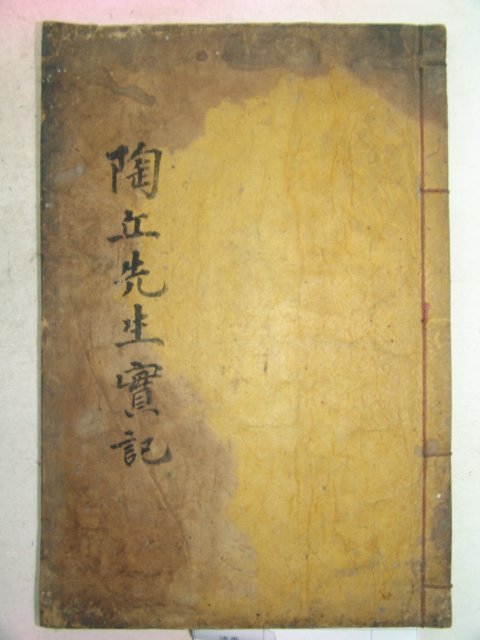 陶丘先生實記